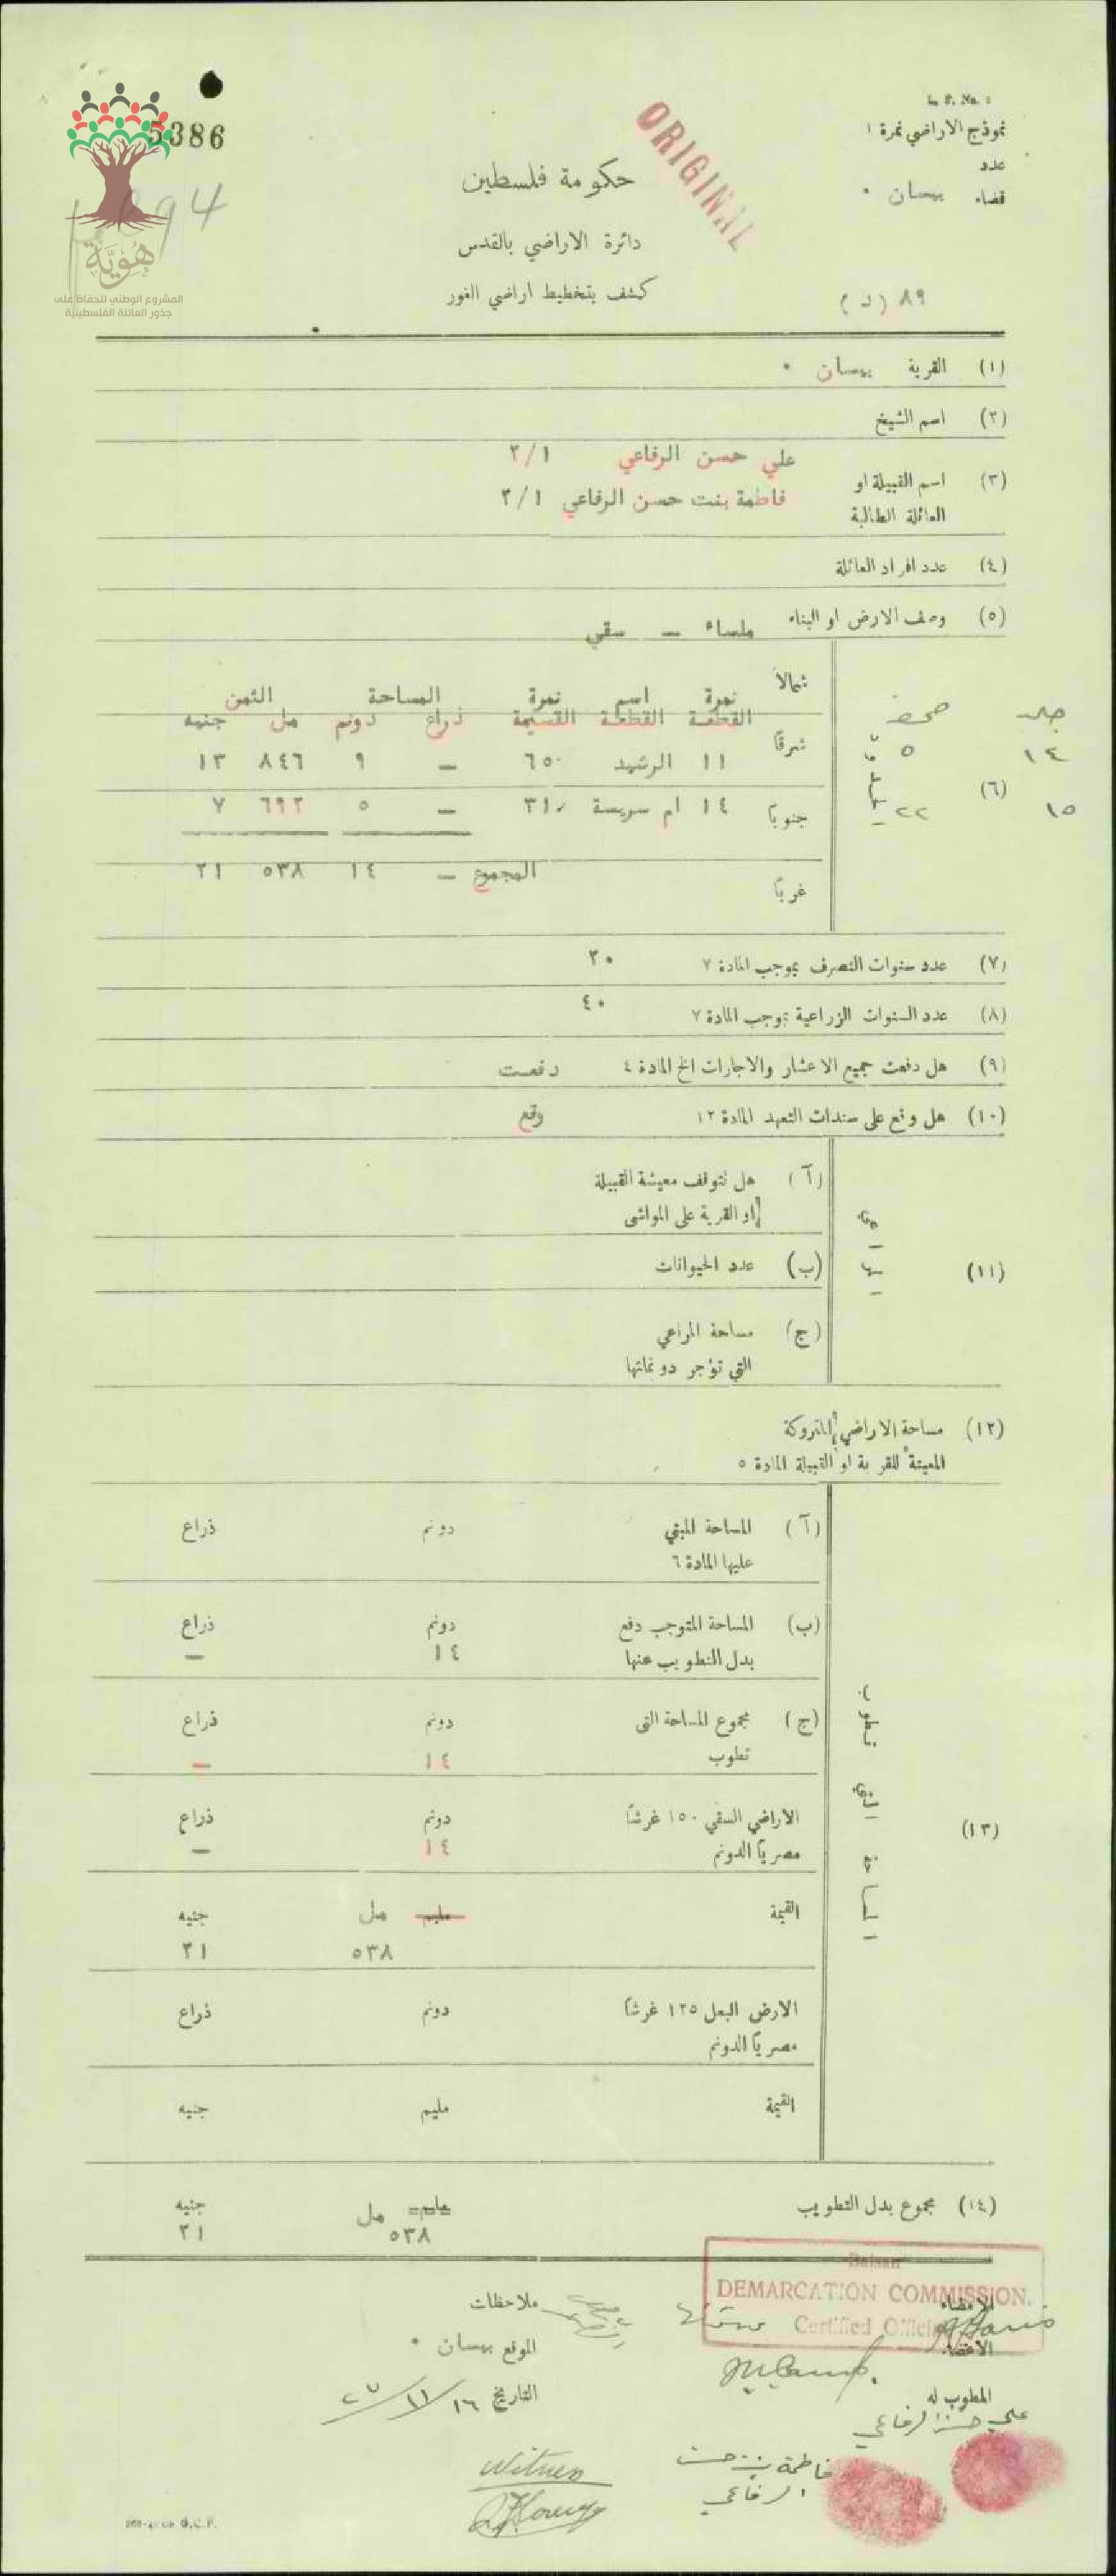 L. P. No. 1
نموذج الاراضي نمرة ١
5386
ORIGINAL
عدد
حكومة فلسطين
قضاء بيسان ٠
دائرة الاراضي بالقدس
هُويَّة
المشروع الوطني للحفاظ على
جذور العائلة الفلسطينية
كشف بتخطيط اراضي الغور
٨٩ (د)
(١) القرية بيسان ٠
(٢) اسم الشيخ
علي حسن الرفاعي ٢/١
(٣) اسم القبيلة او
فاطمة بنت حسن الرفاعي ٢/١
العائلة الطالبة
(٤) عدد افراد العائلة
(٥) وصف الارض او البناء ملساء — سقي
شمالاً
نمرة اسم نمرة المساحة الثمن
القطعة القطعة القسيمة ذراع دونم مل جنيه
جلد صحيفة
شرقاً
١٤ ٥
١١ الرشيد ٦٥٠ — ٩ ٨٤٦ ١٣
(٦)
١٥ ٢٢
جنوباً
١٤ ام سريسة ٣١٠ — ٥ ٦٩٢ ٧
المجموع — ١٤ ٥٣٨ ٢١
غرباً
(٧) عدد سنوات التصرف بموجب المادة ٧ ٢٠
(٨) عدد السنوات الزراعية بموجب المادة ٧ ٤٠
(٩) هل دفعت جميع الاعشار والاجارات الخ المادة ٤ دفعت
(١٠) هل وقع على سندات التعهد المادة ١٢ وقع
(١١)
(آ) هل تتوقف معيشة القبيلة
او القرية على المواشي
(ب) عدد الحيوانات
(ج) مساحة المراعي
التي تؤجر دونماتها
(١٢) مساحة الاراضي المتروكة
المعينة للقرية او القبيلة المادة ٥
(١٣) المساحة التي تطوب
(آ) المساحة المبني دونم ذراع
عليها المادة ٦
(ب) المساحة المتوجب دفع دونم ذراع
بدل التطويب عنها ١٤ —
(ج) مجموع المساحة التي دونم ذراع
تطوب ١٤ —
الاراضي السقي ١٥٠ غرشاً دونم ذراع
مصرياً الدونم ١٤ —
القيمة مليم مل جنيه
٥٣٨ ٢١
الارض البعل ١٢٥ غرشاً دونم ذراع
مصرياً الدونم
القيمة مليم جنيه
(١٤) مجموع بدل التطويب مليم مل جنيه
٥٣٨ ٢١
Baisan
DEMARCATION COMMISSION.
Certified Official
الامضاء
ملاحظات
الامضاء
الموقع بيسان ٠
المطوب له
التاريخ ١٦/١١/٢٧
علي حسن الرفاعي
فاطمة بنت حسن
الرفاعي
Witness
G.C.P.